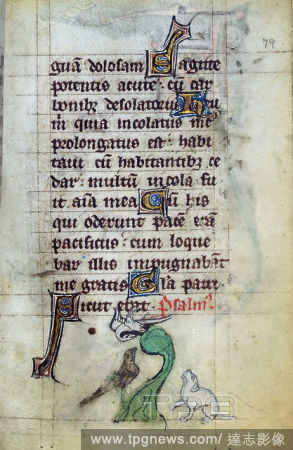 79
guā dolosam Sagitte
potentis acute cū car
bonibꝫ desolatoriis Heu
m̄ quia incolatus me
prolongatus est habi
taui cū habitantibꝫ ce
dar multū incola fu
it aīa mea Cū his
qui oderunt pacē erā
pacificus cum loque
bar illis impugnabāt
me gratis Gl̄a patri
Sicut erat Psalm
www.tpgnews.com/ 達志影像